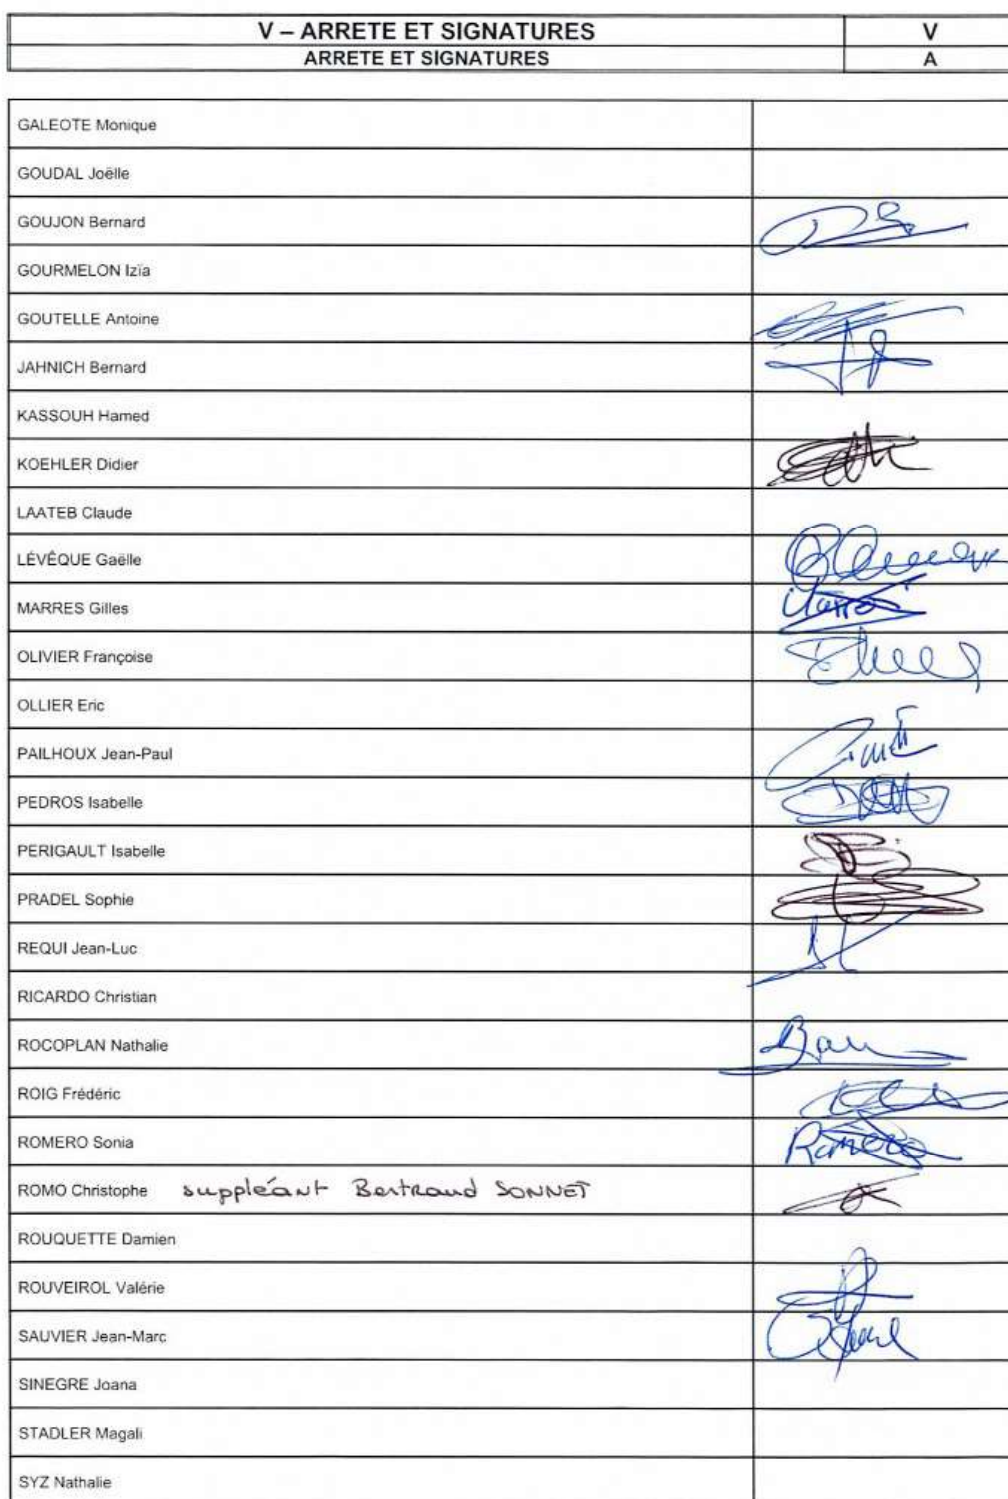 V – ARRETE ET SIGNATURES V
ARRETE ET SIGNATURES A
GALEOTE Monique
GOUDAL Joëlle
GOUJON Bernard
GOURMELON Izïa
GOUTELLE Antoine
JAHNICH Bernard
KASSOUH Hamed
KOEHLER Didier
LAATEB Claude
LÉVÊQUE Gaëlle
MARRES Gilles
OLIVIER Françoise
OLLIER Eric
PAILHOUX Jean-Paul
PEDROS Isabelle
PERIGAULT Isabelle
PRADEL Sophie
REQUI Jean-Luc
RICARDO Christian
ROCOPLAN Nathalie
ROIG Frédéric
ROMERO Sonia Romero
ROMO Christophe suppléant Bertraud SONNET
ROUQUETTE Damien
ROUVEIROL Valérie
SAUVIER Jean-Marc
SINEGRE Joana
STADLER Magali
SYZ Nathalie